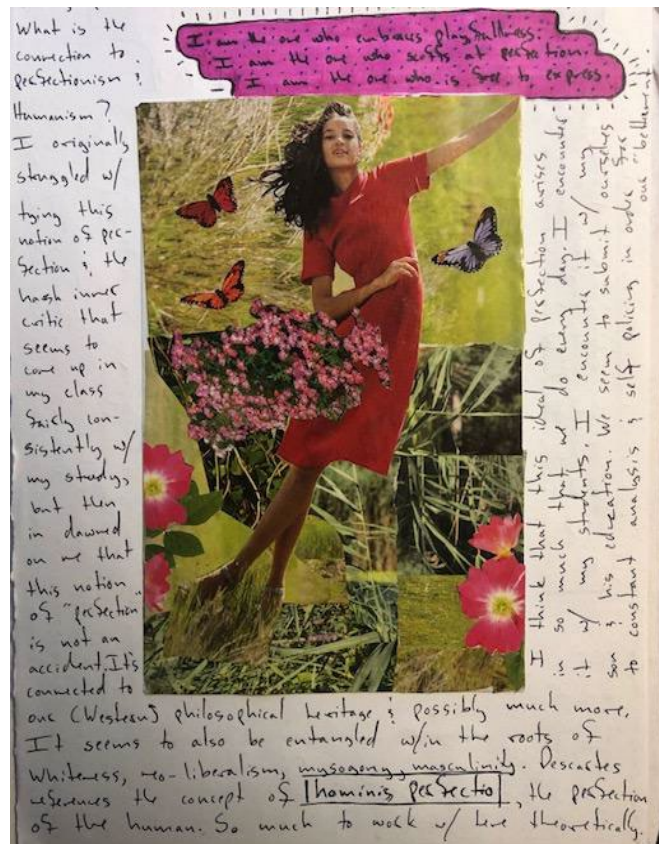 I am the one who embraces playfullness.
I am the one who scoffs at perfection.
I am the one who is free to express.
What is the
connection to
perfectionism &
Humanism?
I originally
struggled w/
tying this
notion of per-
fection & the
hash inner
critic that
seems to
come up in
my class
fairly con-
sistently w/
my studey,
but then
in dawned
on me that
this notion
of "perfection"
is not an
accident. It's
connected to
our (Western) philosophical heritage & possibly much more.
It seems to also be entangled w/in the roots of
Whiteness, neo-liberalism, mysogony, masculinity. Descartes
references the concept of hominis perfectio, the perfection
of the human. So much to work w/ here theoretically.
I think that this ideal of perfection arises
in so much that we do every day. I encounter
it w/ my students. I encounter it w/ my
son & his education. We seem to submit ourselves
to constant analysis & self policing in order for
our "betterment"